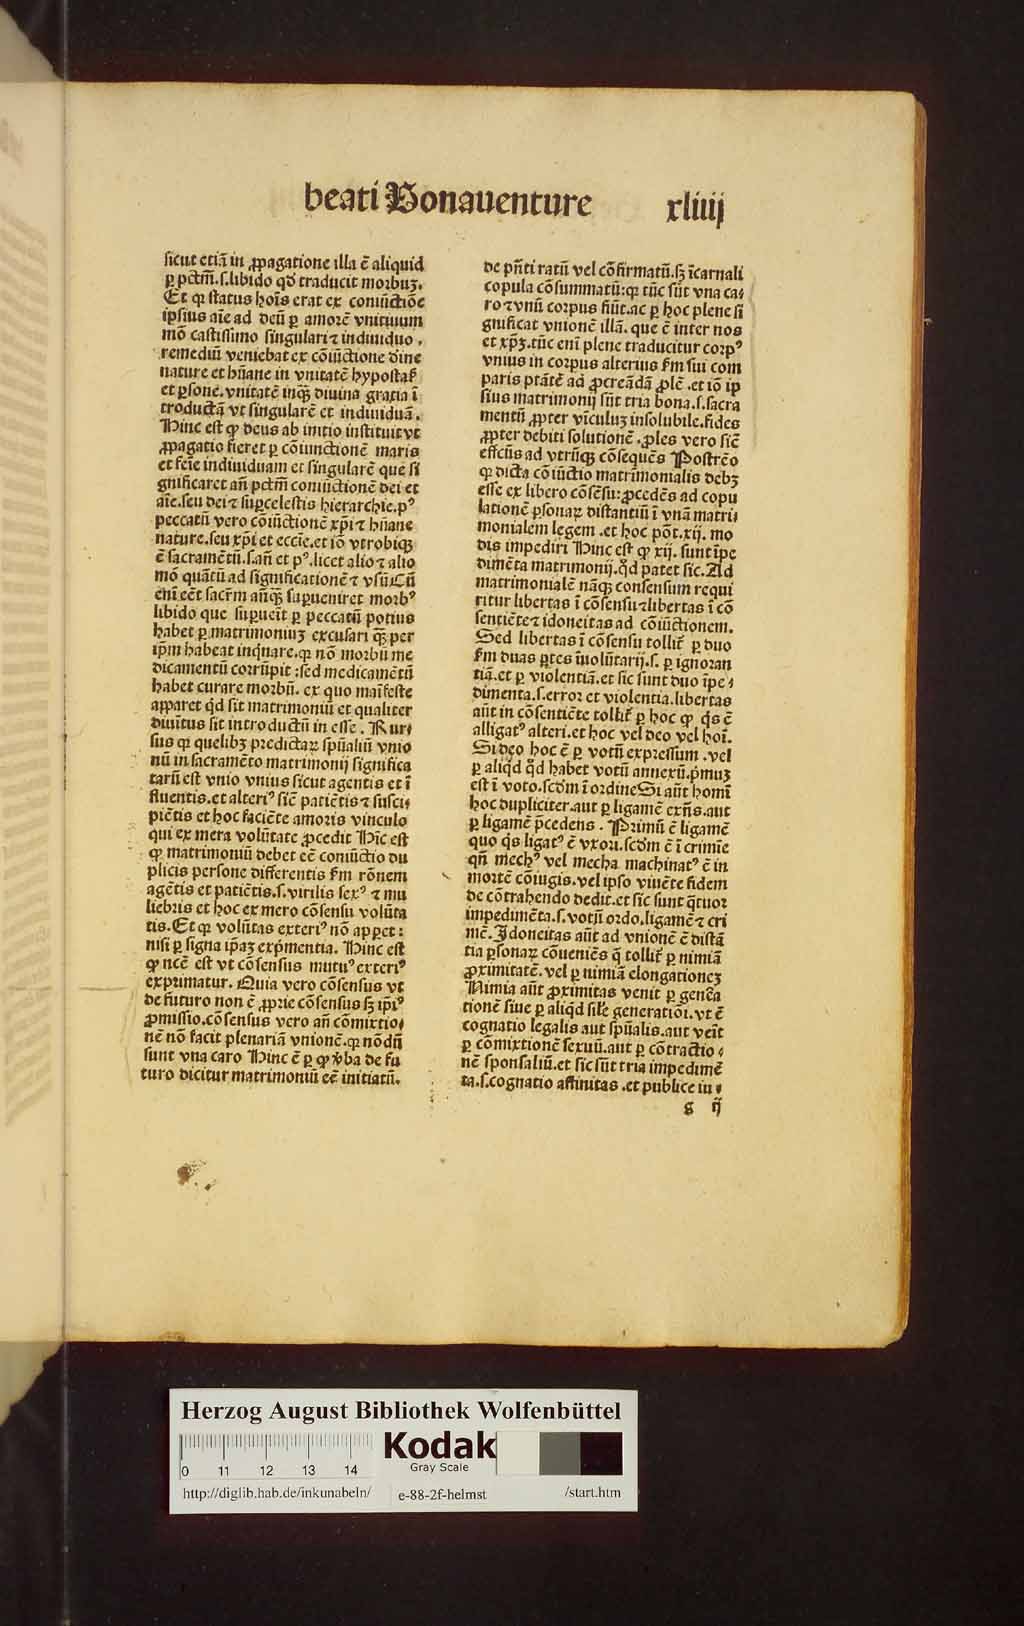 beati Bonauenture xliiij
sicut etiā in ꝓpagatione illa ē aliquid
ꝑ pctm̄.s.libido qd̓ traducit morbuꝫ.
Et qꝛ status hoīs erat ex coniūctiōe
ipsius aīe ad deū ꝑ amorē vnitiuum
mō castissimo singulari ⁊ indiuiduo.
remediū veniebat ex cōiūctione diuine
nature et hūane in vnitatē hypostaſ
et ꝑsone.vnitatē inqꝫ̄ diuina gratia ī
troductā vt singularē et indiuiduā.
Hinc est ꝙ deus ab initio instituit vt
ꝓpagatio fieret ꝑ cōiunctionē maris
et feīe indiuiduam et singularē que si
gnificaret añ pctm̄ coniūctionē dei et
aīe.seu dei ⁊ suꝑcelestis hierarchie.pꝰ
peccatū vero cōiūctionē xp̄i ⁊ hūane
nature.seu xp̄i et eccīe.et iō vtrobiqꝫ
ē sacramētū.s.añ et pꝰ.licet alio ⁊ alio
mō quātū ad significationē ⁊ vsū.Cū
enī eēt sacr̄m añqꝫ̄ suꝑueniret morbꝰ
libido que suꝑueīt ꝑ peccatū potius
habet ꝑ matrimoniuꝫ excusari qꝫ̄ per
ip̄m habeat inqīnare.qꝛ nō morbū me
dicamentū corrūpit:sed medicamētū
habet curare morbū.ex quo maīfeste
apparet qd̓ sit matrimoniū et qualiter
diuītus sit introductū in esse.Rur⸗
sus qꝛ quelibꝫ predictaꝝ spūaliū vnio
nū in sacramēto matrimonij significa
tarū est vnio vnius sicut agentis et ī
fluentis.et alteriꝰ sic̄ patiētis ⁊ susci⸗
piētis et hoc faciēte amoris vinculo
qui ex mera volūtate ꝓcedit Hīc est
ꝙ matrimoniū debet eē coniūctio du
plicis persone differentis fm rōnem
agētis et patiētis.s.virilis sexꝰ ⁊ mu
liebris et hoc ex mero cōsensu volūta
tis.Et qꝛ volūtas exteriꝰ nō apꝑet:
nisi ꝑ signa ip̄aꝫ exp̄mentia.Hinc est
ꝙ ncē est vt cōsensus mutuꝰ exteriꝰ
exprimatur.Quia vero cōsensus vt
de futuro non ē ꝓprie cōsensus sꝫ ip̄iꝰ
ꝓmissio.cōsensus vero añ cōmixtio⸗
nē nō facit plenariā vnionē.qꝛ nōdū
sunt vna caro Hinc ē ꝑ ꝙ v̓ba de fu
turo dicitur matrimoniū eē initiatū.
de pn̄ti ratū vel cōfirmatū.sꝫ ī carnali
copula cōsummatū:qꝛ tūc sūt vna ca⸗
ro ⁊ vnū corpus fiūt.ac ꝑ hoc plene si
gnificat vnionē illā.que ē inter nos
et xp̄ꝫ.tūc enī plene traducitur corpꝰ
vnius in corpus alterius fm sui com
paris ptātē ad ꝓcreādā ꝓlē.et iō ip
sius matrimonij sūt tria bona.s.sacra
mentū ꝓpter vīculuꝫ insolubile.fides
ꝓpter debiti solutionē.ꝓles vero sic̄
effcūs ad vtrūqꝫ cōsequēs Postrēo
qꝛ dicta cōiūctio matrimonialis debꝫ
esse ex libero cōsēsu:ꝓcedēs ad copu
lationē ꝑsonaꝝ distantiū ī vnā matri⸗
monialem legem.et hoc pōt.xij.mo
dis impediri Hinc est ꝙ xij.sunt īpe
dimēta matrimonij.qd̓ patet sic.Ad
matrimonialē nāqꝫ consensum requi
ritur libertas ī cōsensu ⁊ libertas ī cō
sentiēte ⁊ idoneitas ad cōiūctionem.
Sed libertas ī cōsensu tollit̄ ꝑ duo
fm duas ꝑtes īuolūtarij.s.ꝑ ignoran
tiā.et ꝑ violentiā.et sic sunt duo īpe⸗
dimenta.s.error et violentia.libertas
aūt in cōsentiēte tollit̄ ꝑ hoc ꝙ qͥs ē
alligatꝰ alteri.et hoc vel deo vel hoī.
Si deo hoc ē ꝑ votū expressum.vel
ꝑ aliqͥd qd̓ habet votū annexū.p̄muꝫ
est ī voto.scd̄m ī ordine Si aūt homī
hoc dupliciter.aut ꝑ ligamē exn̄s.aut
ꝑ ligamē p̄cedens.Primū ē ligamē
quo qͥs ligatꝰ ē vxori.scd̄m ē ī crimīe
qn̄ mechꝰ vel mecha machinatꝰ ē in
mortē cōiugis.vel ipso viuēte fidem
de cōtrahendo dedit.et sic sunt qͣtuor
impedimēta.s.votū ordo.ligamē ⁊ cri
mē.Idoneitas aūt ad vnionē ē distā
tia ꝑsonaꝝ cōueniēs q̄ tollit̄ ꝑ nimiā
ꝓximitatē.vel ꝑ nimiā elongationeꝫ
Nimia aūt ꝓximitas venit ꝑ genēa
tionē siue ꝑ aliqͥd sil̄e generatiōi.vt ē
cognatio legalis aut spūalis.aut veīt
ꝑ cōmixtionē sexuū.aut ꝑ cōtractio⸗
nē sponsaliū.et sic sūt tria impedimē
ta.s.cognatio affinitas.et publice iu⸗
g ij
Herzog August Bibliothek Wolfenbüttel
0 11 12 13 14
Kodak
Gray Scale
http://diglib.hab.de/inkunabeln/ e-88-2f-helmst /start.htm